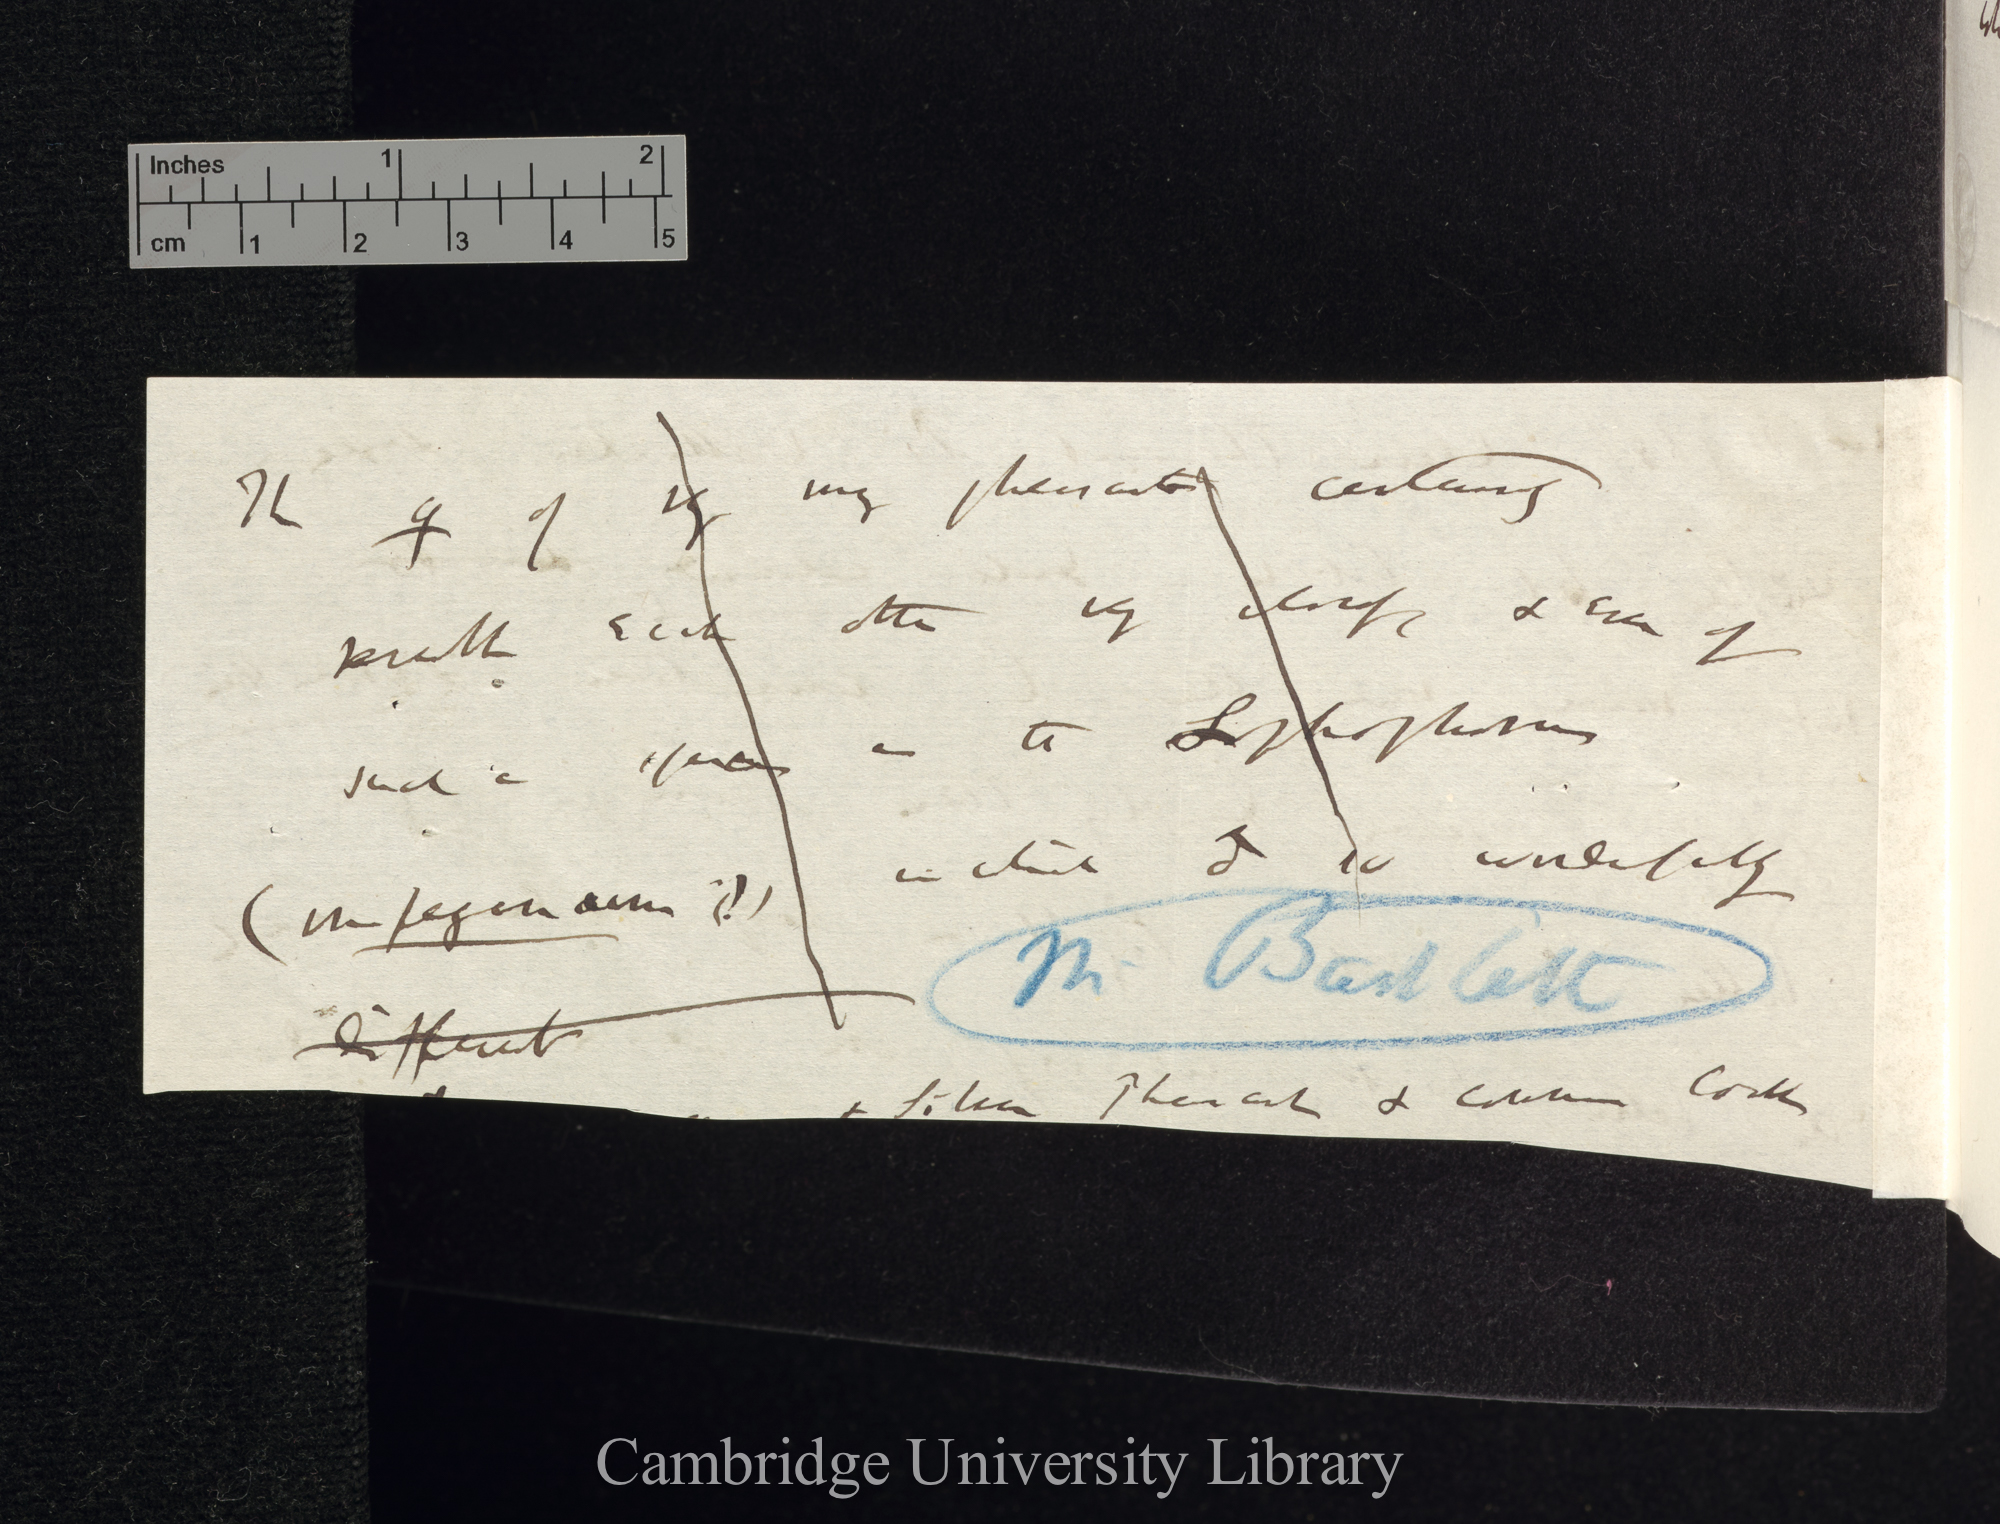 Inches 1 2
cm 1 2 3 4 5
The ♀ of very many pheasants certainly
resemble each other very closely & even of
such a species as the Lophophorus
(                    (?)) in which ♂ is wonderfully
Mr Bartlett
different
& Silver Pheasant & common Cock
Cambridge University Library